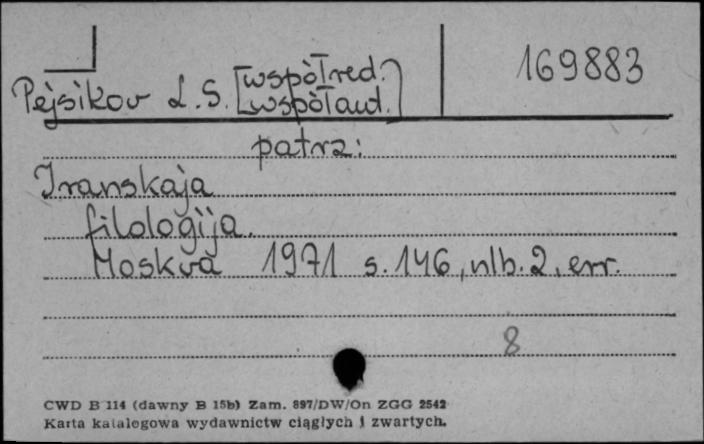 169883
Pejsikov L. S. [współred. współaut.]
patrz:
Iranskaja
filologija.
Moskva 1971 s. 146, nlb. 2, err.
8
CWD B 114 (dawny B 15b) Zam. 897/DW/On ZGG 2542
Karta katalogowa wydawnictw ciągłych i zwartych.